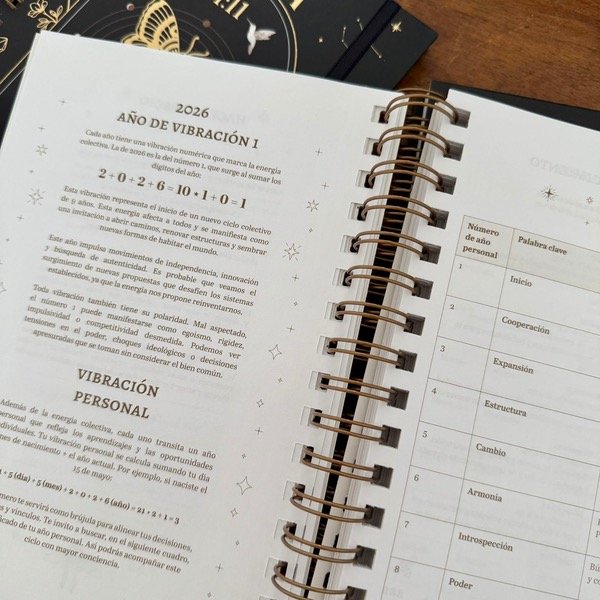 2026
AÑO DE VIBRACIÓN 1
Cada año tiene una vibración numérica que marca la energía
colectiva. La de 2026 es la del número 1, que surge al sumar los
dígitos del año:
2+0+2+6=10 • 1+0=1
Esta vibración representa el inicio de un nuevo ciclo colectivo
de 9 años. Esta energía afecta a todos y se manifiesta como
una invitación a abrir caminos, renovar estructuras y sembrar
nuevas formas de habitar el mundo.
Este año impulsa movimientos de independencia, innovación
y búsqueda de autenticidad. Es probable que veamos el
surgimiento de nuevas propuestas que desafíen los sistemas
establecidos, ya que la energía nos propone reinventarnos.
Toda vibración también tiene su polaridad. Mal aspectado,
el número 1 puede manifestarse como egoísmo, rigidez,
impulsividad o competitividad desmedida. Podemos ver
tensiones en el poder, choques ideológicos o decisiones
apresuradas que se toman sin considerar el bien común.
VIBRACIÓN
PERSONAL
Además de la energía colectiva, cada uno transita un año
personal que refleja los aprendizajes y las oportunidades
individuales. Tu vibración personal se calcula sumando tu día
mes de nacimiento + el año actual. Por ejemplo, si naciste el
15 de mayo:
+ 5 (día) + 5 (mes) + 2 + 0 + 2 + 6 (año) = 21 • 2 + 1 = 3
número te servirá como brújula para alinear tus decisiones,
y vínculos. Te invito a buscar, en el siguiente cuadro,
de tu año personal. Así podrás acompañar este
ciclo con mayor conciencia.
Número
de año
personal
Palabra clave
1
Inicio
2
Cooperación
3
Expansión
4
Estructura
5
Cambio
6
Armonía
7
Introspección
8
Poder